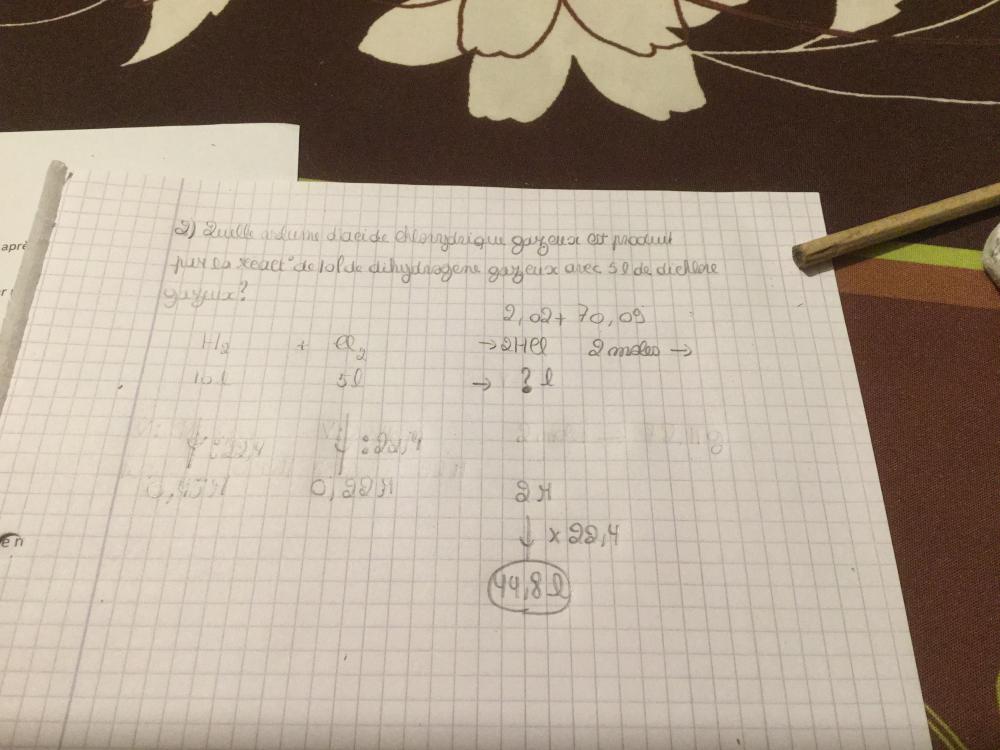 aprè
r
en
2) Quelle volume d'acide chlorydrique gazeux est produit
par la react° de 10l de dihydrogene gazeux avec 5l de dichlore
gazeux?
2,02 + 70,09
H2 + Cl2 → 2HCl 2 moles →
10 l 5l → ? l
↓ : 22,4 ↓ : 22,4
0,45 M 0,22 M 2 M
↓ x 22,4
44,8 l